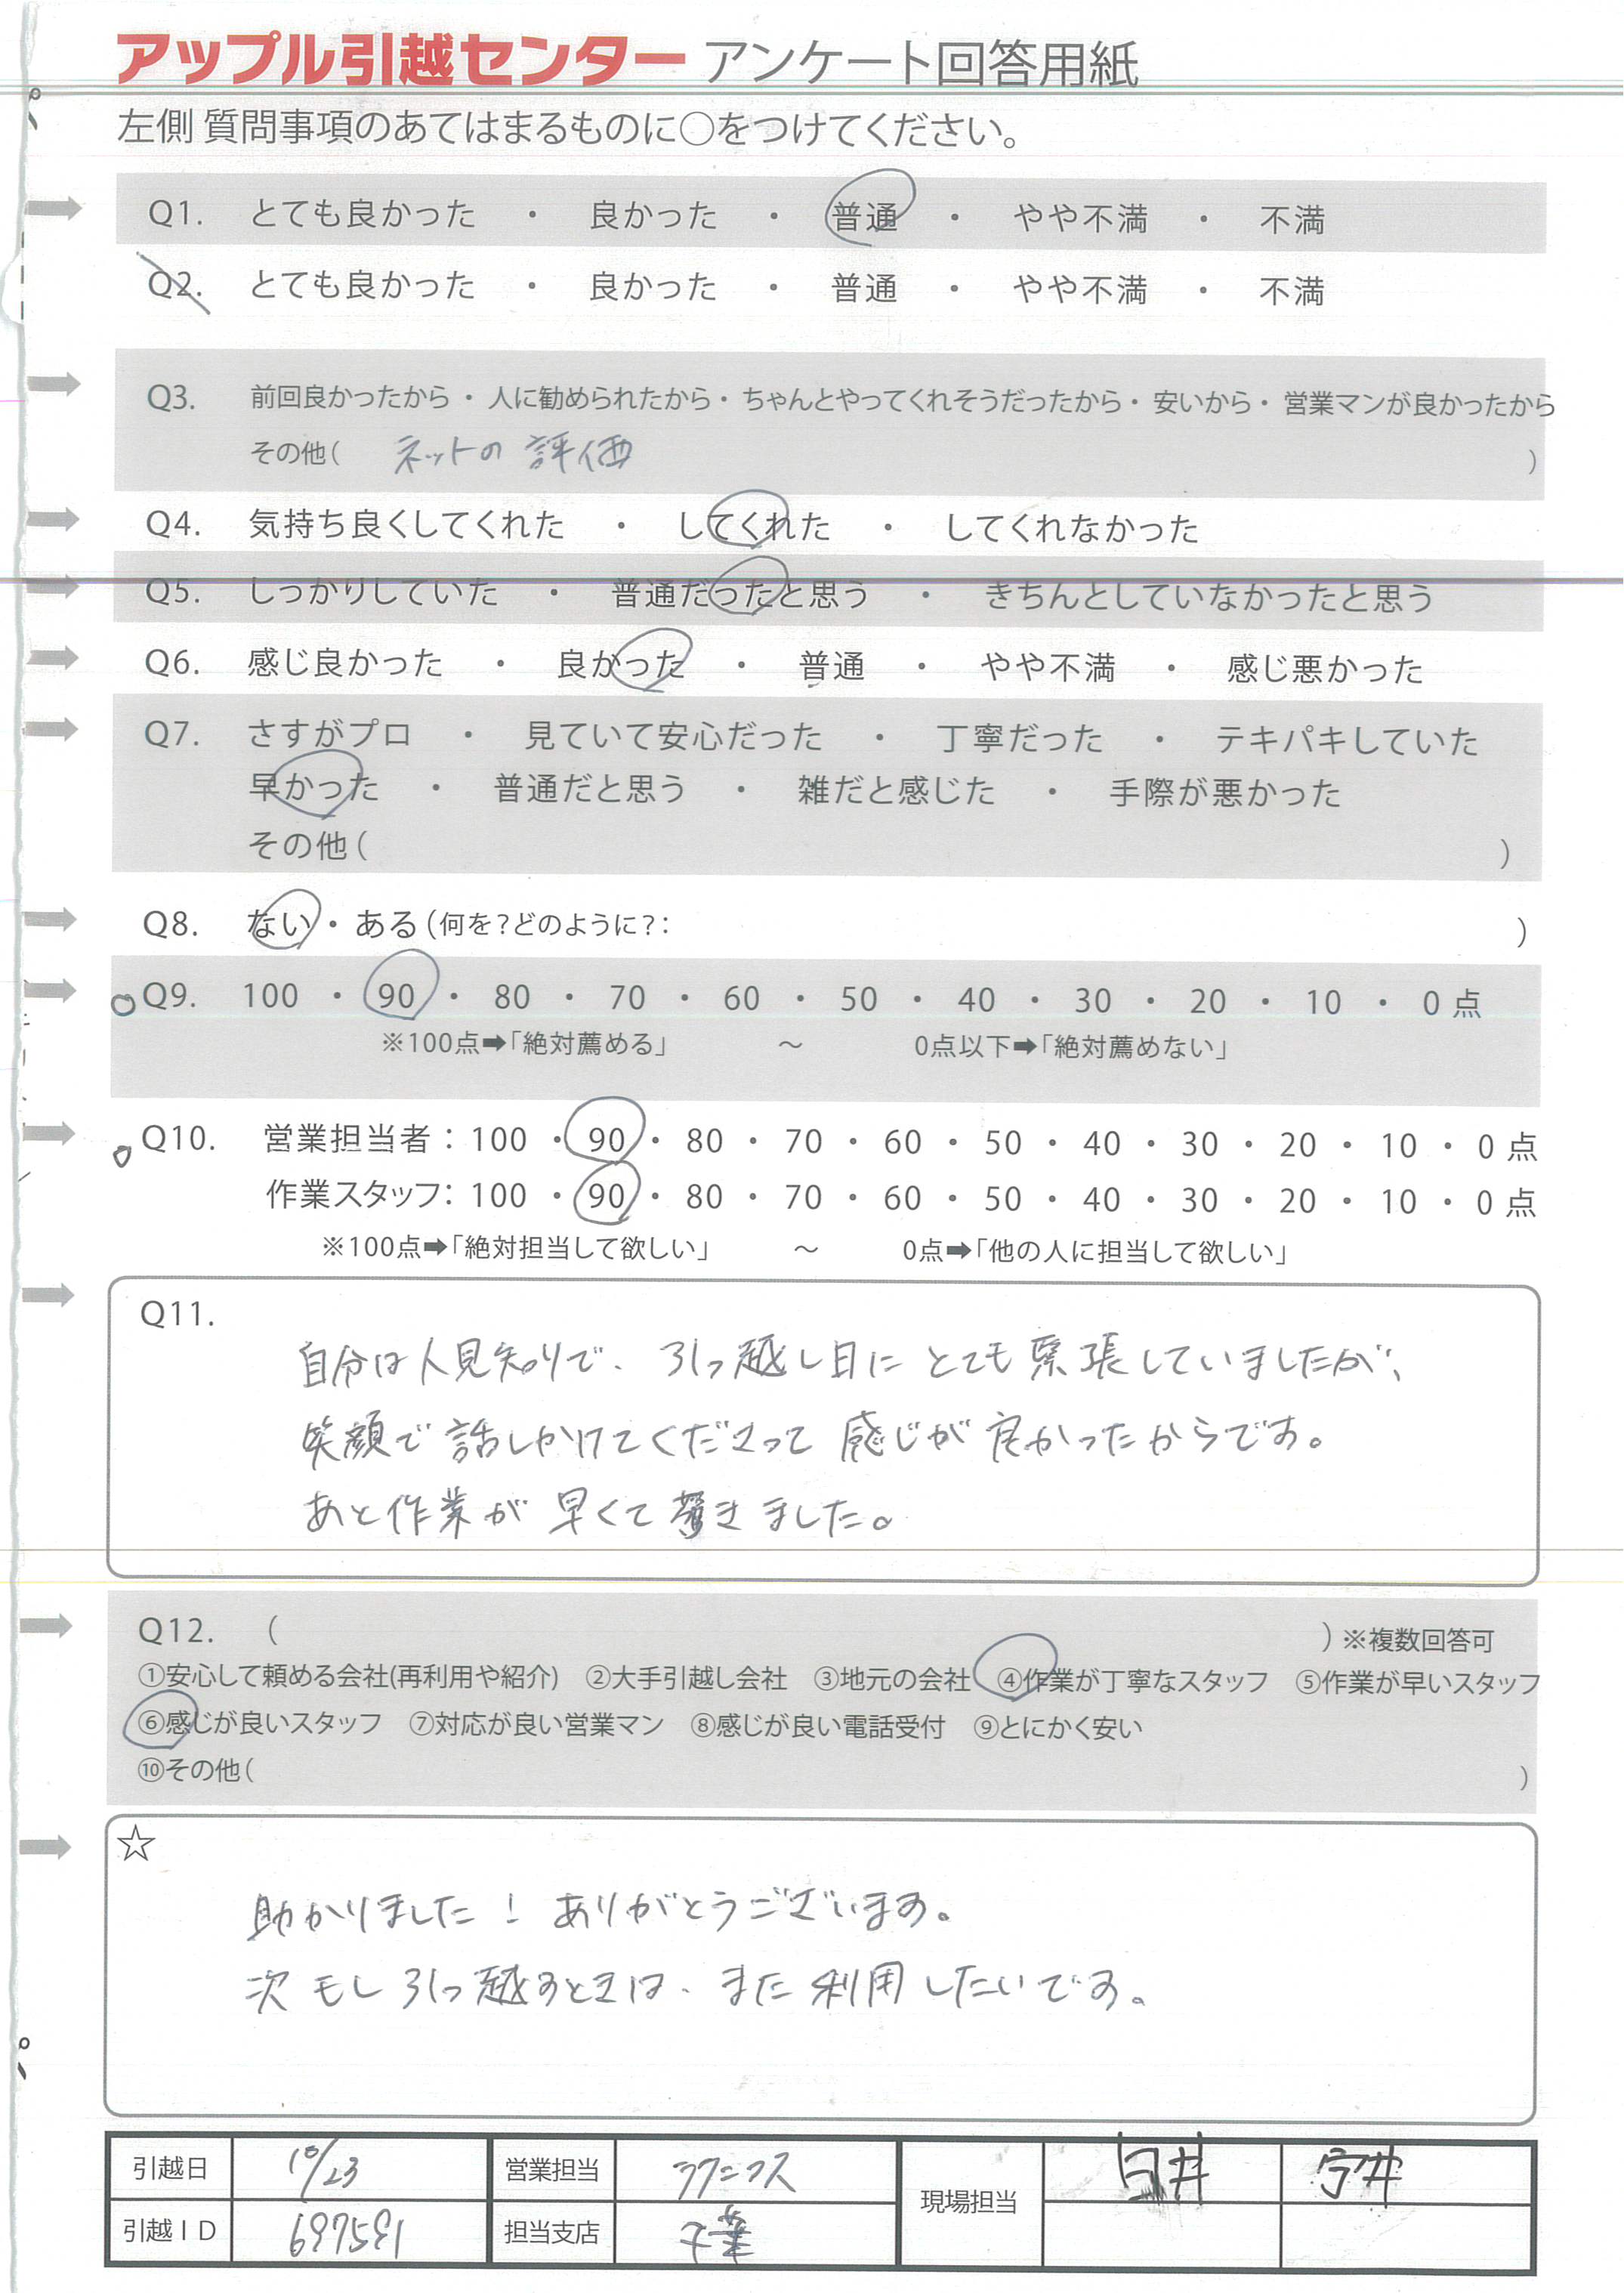 アップル引越センター アンケート回答用紙
左側 質問事項のあてはまるものに○をつけてください。
Q1. とても良かった ・ 良かった ・ 普通 ・ やや不満 ・ 不満
Q2. とても良かった ・ 良かった ・ 普通 ・ やや不満 ・ 不満
Q3. 前回良かったから・ 人に勧められたから・ ちゃんとやってくれそうだったから・ 安いから・ 営業マンが良かったから
その他( ネットの評価 )
Q4. 気持ち良くしてくれた ・ してくれた ・ してくれなかった
Q5. しっかりしていた ・ 普通だったと思う ・ きちんとしていなかったと思う
Q6. 感じ良かった ・ 良かった ・ 普通 ・ やや不満 ・ 感じ悪かった
Q7. さすがプロ ・ 見ていて安心だった ・ 丁寧だった ・ テキパキしていた
早かった ・ 普通だと思う ・ 雑だと感じた ・ 手際が悪かった
その他( )
Q8. ない・ある(何を?どのように?: )
Q9. 100 ・ 90 ・ 80 ・ 70 ・ 60 ・ 50 ・ 40 ・ 30 ・ 20 ・ 10 ・ 0 点
※100点➡「絶対薦める」 〜 0点以下➡「絶対薦めない」
Q10. 営業担当者：100 ・ 90 ・ 80 ・ 70 ・ 60 ・ 50 ・ 40 ・ 30 ・ 20 ・ 10 ・ 0 点
作業スタッフ：100 ・ 90 ・ 80 ・ 70 ・ 60 ・ 50 ・ 40 ・ 30 ・ 20 ・ 10 ・ 0 点
※100点➡「絶対担当して欲しい」 〜 0点➡「他の人に担当して欲しい」
Q11.
自分は人見知りで、引っ越し日にとても緊張していましたが、
笑顔で話しかけてくださって感じが良かったからです。
あと作業が早くて驚きました。
Q12. ( ) ※複数回答可
①安心して頼める会社(再利用や紹介) ②大手引越し会社 ③地元の会社 ④作業が丁寧なスタッフ ⑤作業が早いスタッフ
⑥感じが良いスタッフ ⑦対応が良い営業マン ⑧感じが良い電話受付 ⑨とにかく安い
⑩その他( )
☆
助かりました！ありがとうございます。
次もし引っ越すときは、また利用したいです。
引越日 10/23 営業担当 現場担当 臼井 宇井
引越ＩＤ 697591 担当支店 千葉